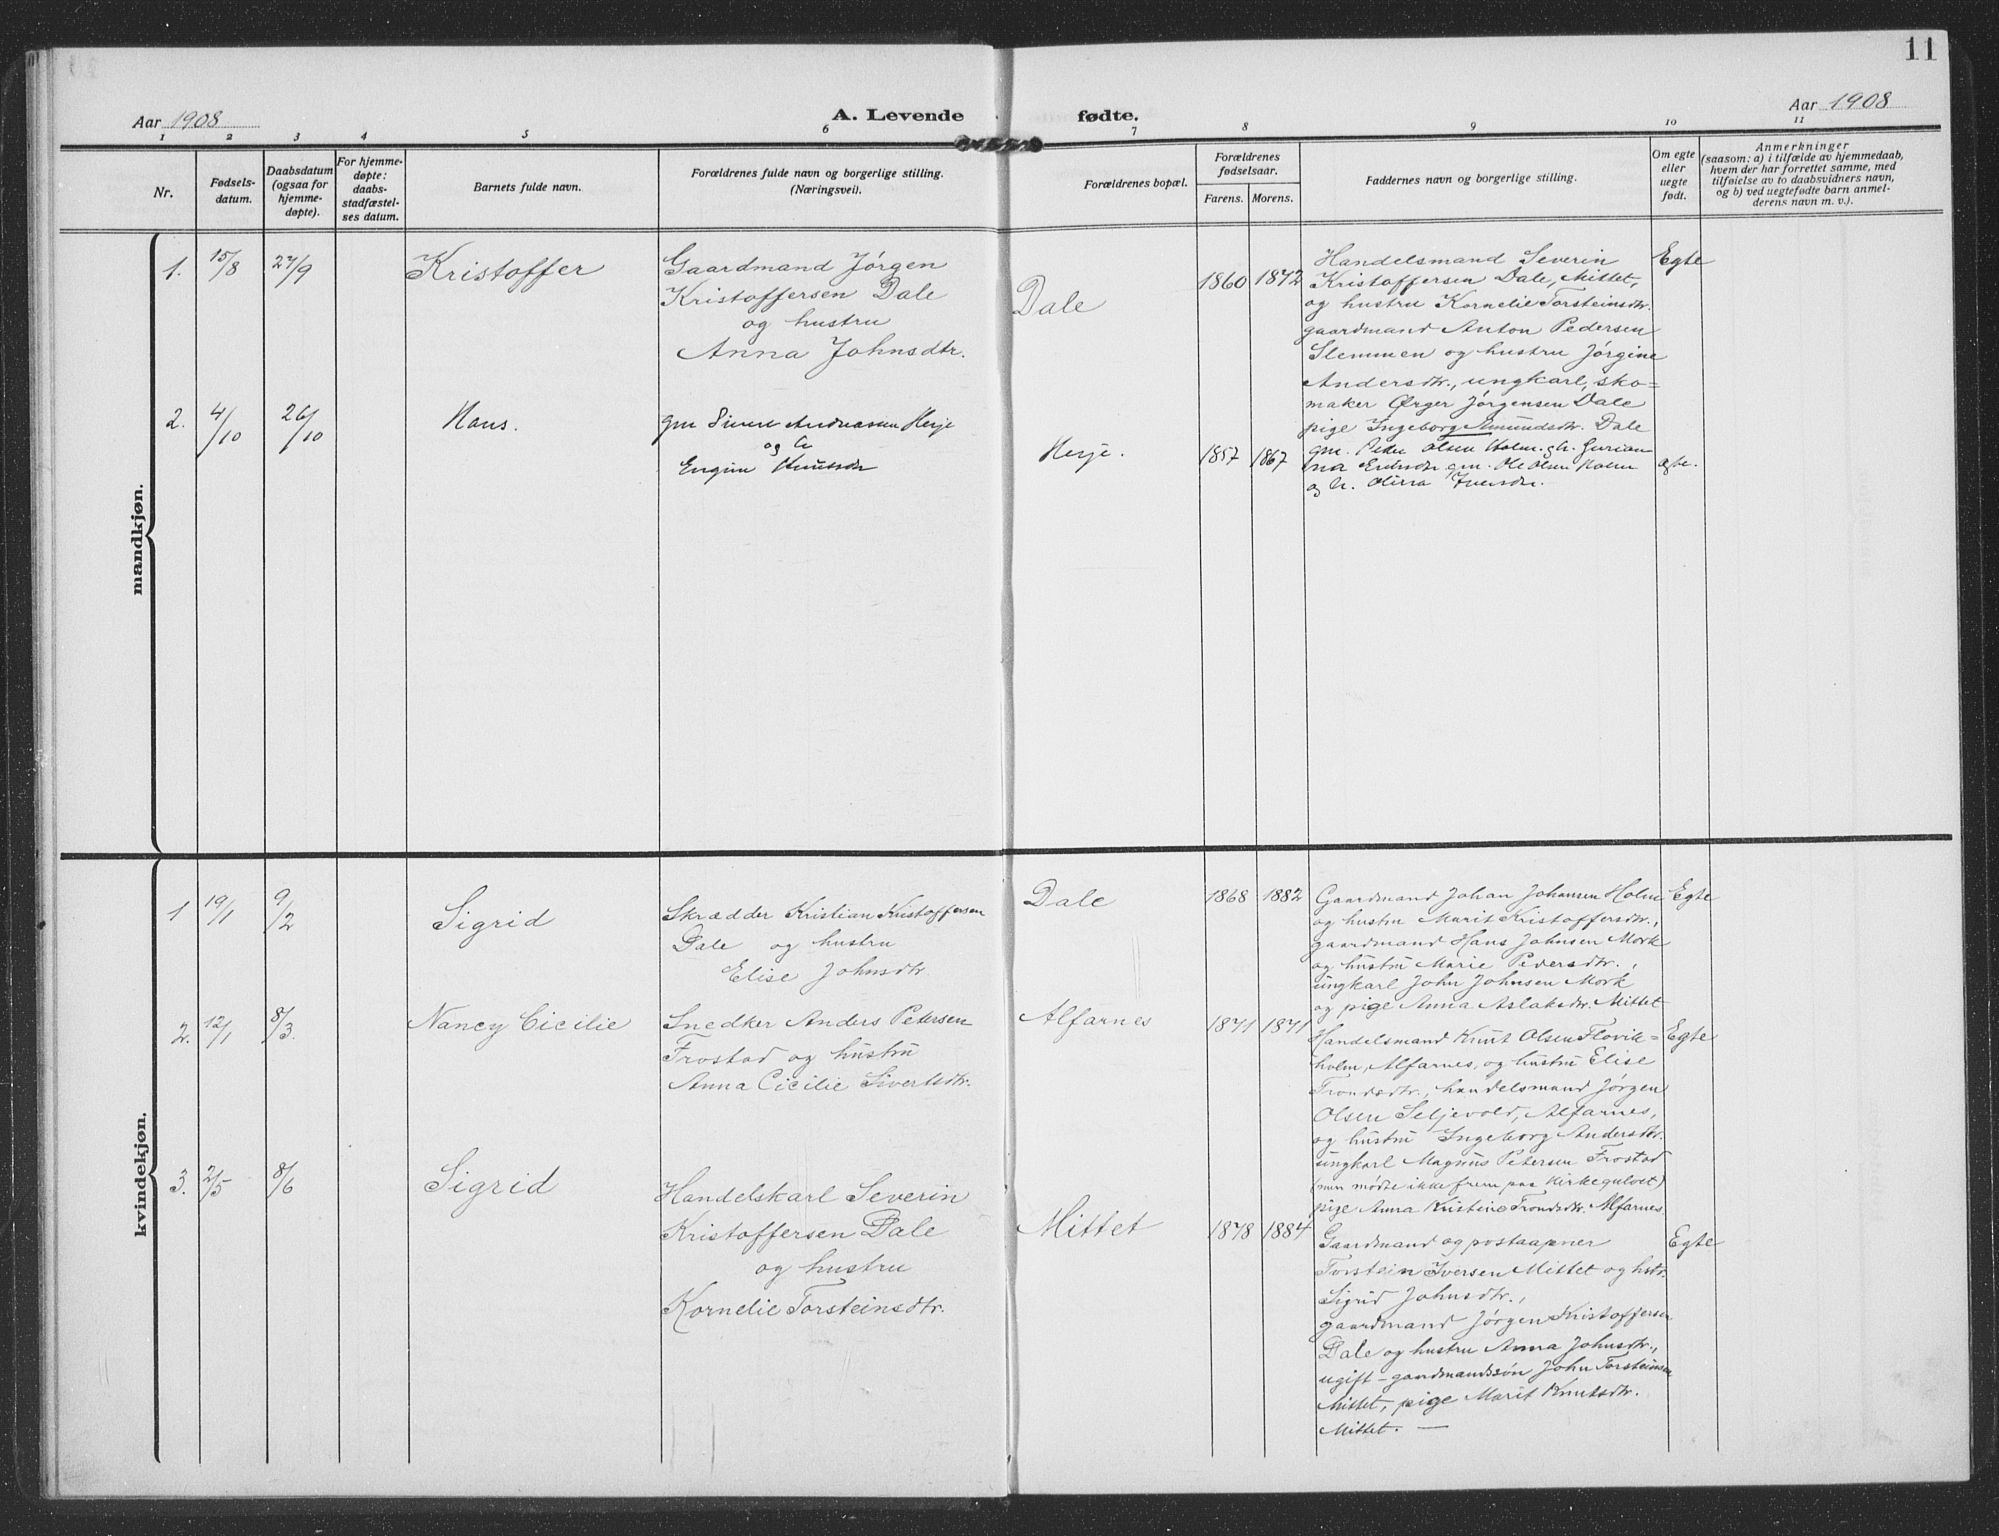 11
Aar 1908
A. Levende fødte.
Aar 1908
1 2 3 4 5 6 7 8 9 10 11
Nr.
Fødsels-
datum.
Daabsdatum
(ogsaa for
hjemme-
døpte).
For hjemme-
døpte:
daabs-
stadfæstel-
ses datum.
Barnets fulde navn.
Forældrenes fulde navn og borgerlige stilling.
(Næringsvei).
Forældrenes bopæl.
Forældrenes
fødselsaar.
Farens. Morens.
Faddernes navn og borgerlige stilling.
Om egte
eller
uegte
født.
Anmerkninger
(saasom: a) i tilfælde av hjemmedaab,
hvem der har forrettet samme, med
tilføielse av to daabsvidners navn,
og b) ved uegtefødte barn anmel-
derens navn m. v.).
mandkjøn.
1. 15/8 27/9
Kristoffer
Gaardmand Jørgen
Kristoffersen Dale
og hustru
Anna Johnsdtr.
Dale
1860 1872
Handelsmand Severin
Kristoffersen Dale, Mittet,
og hustru Kornelie Torsteinsdtr.
gaardmand Anton Pedersen
Slemmen og hustru Jørgine
Andersdtr., ungkarl, sko=
maker Ørger Jørgensen Dale
pige Ingeborg Amundsdtr. Dale
Egte
2. 4/10 26/10
Hans.
gm Sivert Andreasen Herje
og h
Engine Knutsdr
Herje.
1857 1867
gm. Peder Olsen Holm og h. Gurian
na Eriksdr gm. Ole Olsen Holm
og h. Olina Iversdr.
egte.
kvindekjøn.
1 19/1 9/2
Sigrid
Skrædder Kristian Kristoffersen
Dale og hustru
Elise Johnsdtr
Dale
1868 1882
Gaardmand Johan Johansen Holm
og hustru Marit Kristoffersdtr.,
gaardmand Hans Johnsen Mork
og hustru Marie Pedersdtr.,
ungkarl John Johnsen Mork
og pige Anna Aslaksdtr. Mittet
Egte
2. 12/1 8/3.
Nancy Cicilie
Snedker Anders Petersen
Frostad og hustru
Anna Cicilie Sivertsdtr.
Alfarnes
1871 1871
Handelsmand Knut Olsen Flovik=
holm, Alfarnes, og hustru Elise
Trondsdtr., handelsmand Jørgen
Olsen Seljevold, Alfarnes,
og hustru Ingeborg Andersdtr.
ungkarl Magnus Petersen Frostad
(men mødte ikke frem paa kirkegulvet)
pige Anna Kristine Trondsdtr. Alfarnes.
Egte
3. 2/5 8/6
Sigrid
Handelskarl Severin
Kristoffersen Dale
og hustru
Kornelie Torsteinsdtr.
Mittet
1878 1884
Gaardmand og postaapner
Torstein Iversen Mittet og hstr.
Sigrid Johnsdtr.,
gaardmand Jørgen Kristoffersen
Dale og hustru Anna Johnsdtr.,
ugift - gaardmandssøn John Torsteinsen
Mittet, pige Marit Knutsdtr.
Mittet. —
Egte